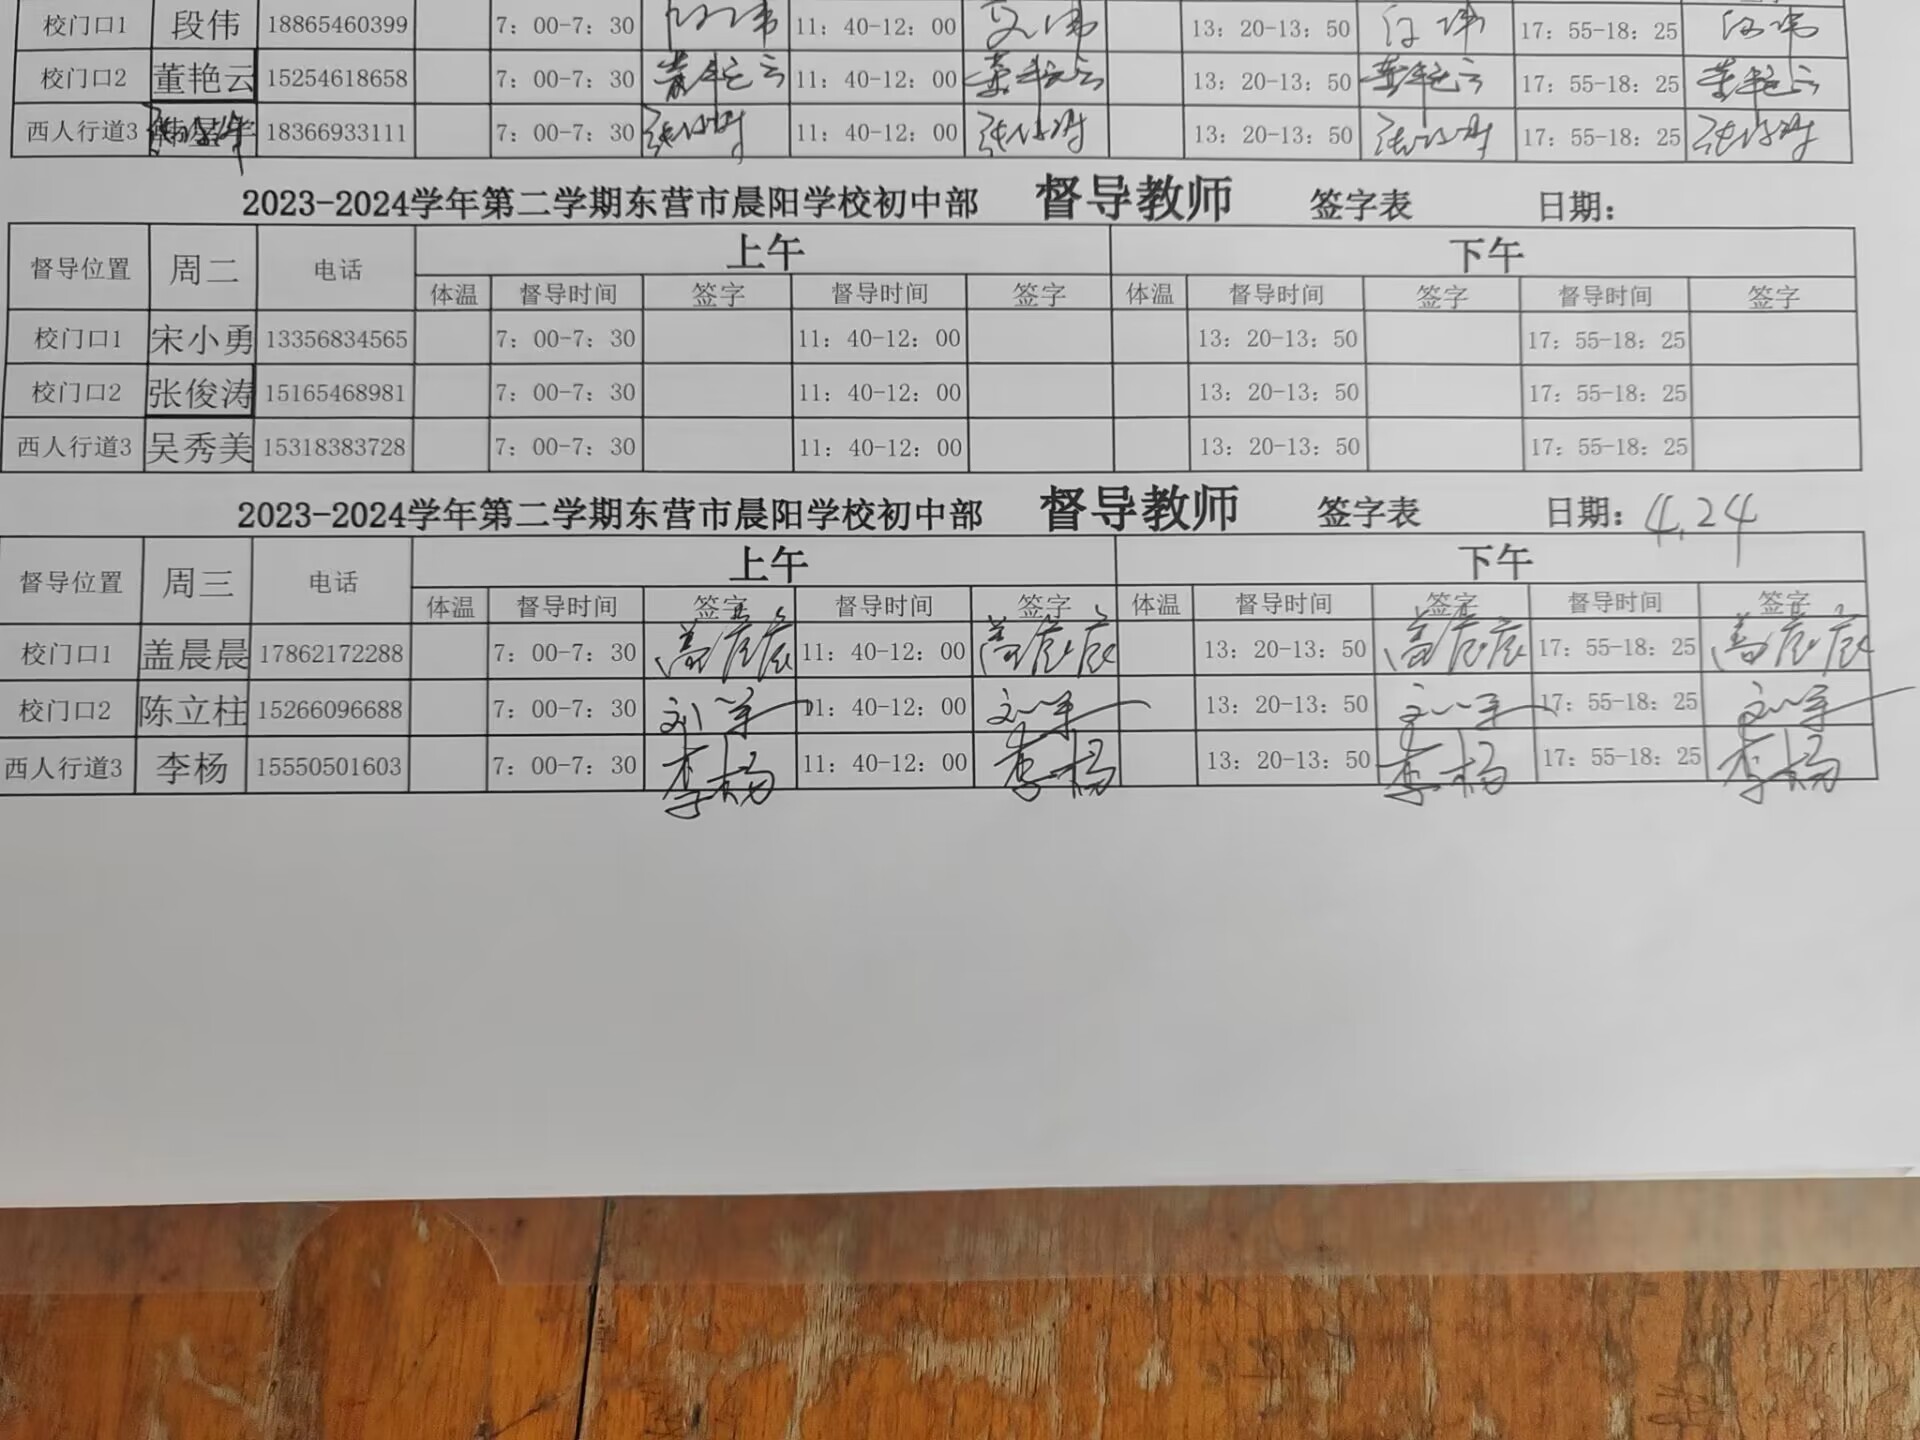 校门口1 段伟 18865460399 7：00-7：30 11：40-12：00 段伟 13：20-13：50 段伟 17：55-18：25 段伟
校门口2 董艳云 15254618658 7：00-7：30 董艳云 11：40-12：00 董艳云 13：20-13：50 董艳云 17：55-18：25 董艳云
西人行道3 18366933111 7：00-7：30 11：40-12：00 13：20-13：50 17：55-18：25
2023-2024学年第二学期东营市晨阳学校初中部 督导教师 签字表 日期：
督导位置 周二 电话 上午 下午
体温 督导时间 签字 督导时间 签字 体温 督导时间 签字 督导时间 签字
校门口1 宋小勇 13356834565 7：00-7：30 11：40-12：00 13：20-13：50 17：55-18：25
校门口2 张俊涛 15165468981 7：00-7：30 11：40-12：00 13：20-13：50 17：55-18：25
西人行道3 吴秀美 15318383728 7：00-7：30 11：40-12：00 13：20-13：50 17：55-18：25
2023-2024学年第二学期东营市晨阳学校初中部 督导教师 签字表 日期：4.24
督导位置 周三 电话 上午 下午
体温 督导时间 签字 督导时间 签字 体温 督导时间 签字 督导时间 签字
校门口1 盖晨晨 17862172288 7：00-7：30 盖晨晨 11：40-12：00 盖晨晨 13：20-13：50 盖晨晨 17：55-18：25 盖晨晨
校门口2 陈立柱 15266096688 7：00-7：30 11：40-12：00 13：20-13：50 17：55-18：25
西人行道3 李杨 15550501603 7：00-7：30 李杨 11：40-12：00 李杨 13：20-13：50 李杨 17：55-18：25 李杨